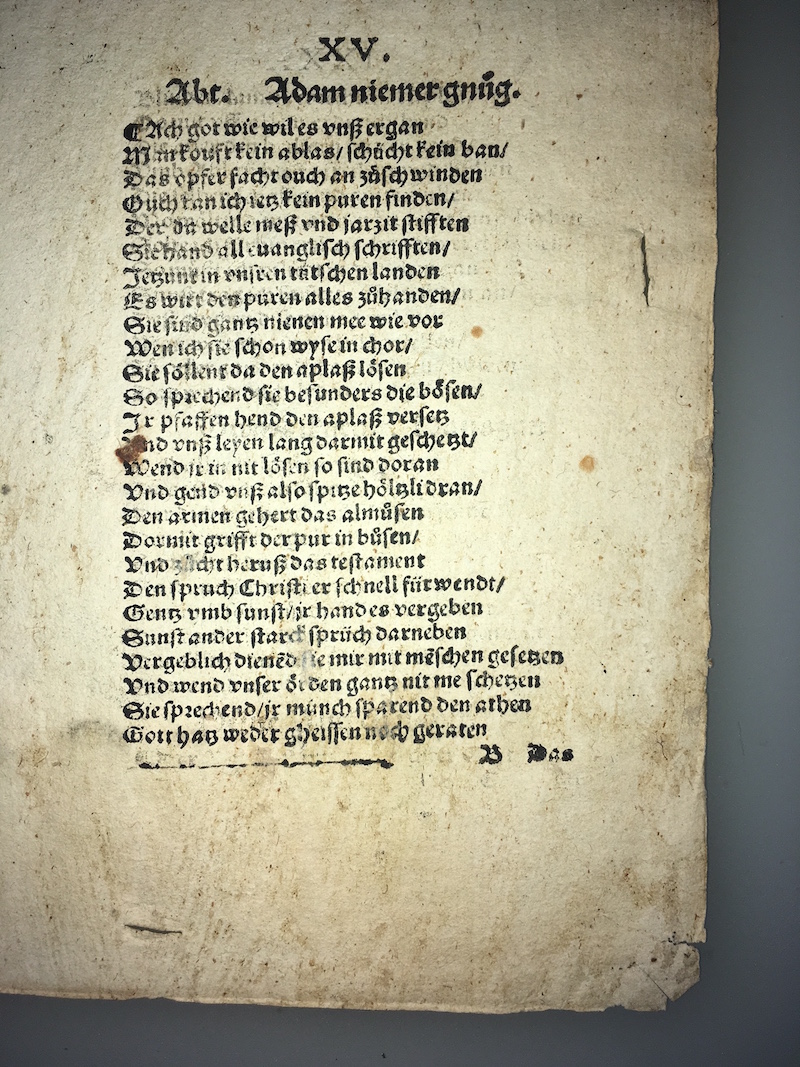 XV.
Abt. Adam niemer gnůg.
Ach got wie wil es vnß ergan
Man koufft kein ablas/ schücht kein ban/
Das opfer facht ouch an zůschwinden
Ouch kan ich ietz kein puren finden/
Der da welle meß vnd jarzit stifften
Sie hand all euanglisch schrifften/
Jetzunt in vnsren tütschen landen
Es wirt den puren alles zůhanden/
Sie sind gantz nienen mee wie vor
Wen ich sie schon wyse in chor/
Sie söllent da den aplaß lösen
So sprechend sie besunders die bösen/
Jr pfaffen hend den aplaß versetz
Vnd vnß leyen lang darmit geschetzt/
Wend jr in nit lösen so sind doran
Vnd gend vnß also spitze höltzli dran/
Den armen gehert das almůsen
Dormit grifft der pur in bůsen/
Vnd zücht heruß das testament
Den spruch Christi er schnell fürwendt/
Gentz vmb sunst/ jr hand es vergeben
Sunst ander starck sprüch darneben
Vergeblich dienēd sie mir mit mēschen gesetzen
Vnd wend vnser örden gantz nit me schetzen
Sie sprechend/ jr münch sparend den athen
Gott hatz weder gheissen noch geraten
B Das